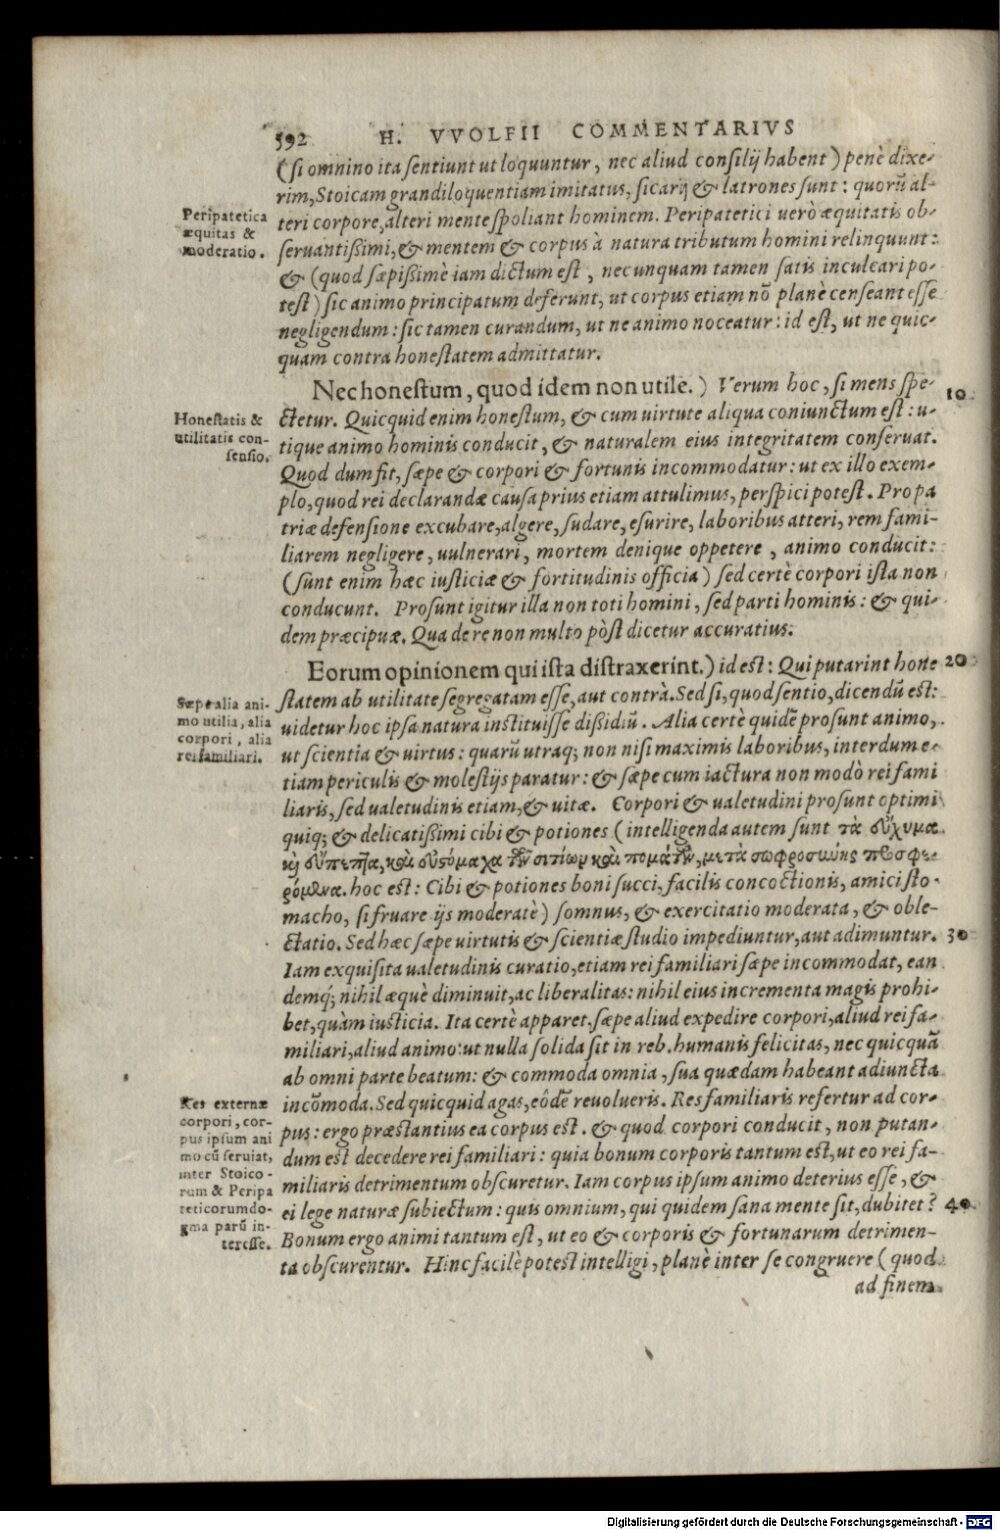 592 H. VVOLFII COMMENTARIVS
(si omnino ita sentiunt ut loquuntur, nec aliud consilij habent) penè dixe-
rim, Stoicam grandiloquentiam imitatus, sicarij & latrones sunt: quorũ al-
teri corpore, alteri mente spoliant hominem. Peripatetici uerò æquitatis ob-
seruantißimi, & mentem & corpus à natura tributum homini relinquunt:
& (quod sæpißimè iam dictum est, nec unquam tamen satis inculcari po-
test) sic animo principatum deferunt, ut corpus etiam nõ planè censeant esse
negligendum: sic tamen curandum, ut ne animo noceatur: id est, ut ne quic-
quam contra honestatem admittatur.
Peripatetica
æquitas &
moderatio.
Nec honestum, quod idem non utile.) Verum hoc, si mens spe-
10
ctetur. Quicquid enim honestum, & cum uirtute aliqua coniunctum est: u-
tique animo hominis conducit, & naturalem eius integritatem conseruat.
Quod dum fit, sæpe & corpori & fortunis incommodatur: ut ex illo exem-
plo, quod rei declarandæ causa prius etiam attulimus, perspici potest. Pro pa
triæ defensione excubare, algere, sudare, esurire, laboribus atteri, rem fami-
liarem negligere, uulnerari, mortem denique oppetere, animo conducit:
(sunt enim hæc iusticiæ & fortitudinis officia) sed certè corpori ista non
conducunt. Prosunt igitur illa non toti homini, sed parti hominis: & qui-
dem præcipuæ. Qua de re non multo pòst dicetur accuratius.
Honestatis &
utilitatis con-
sensio.
Eorum opinionem qui ista distraxerint.) id est: Qui putarint hone
20
statem ab utilitate segregatam esse, aut contrà. Sed si, quod sentio, dicendũ est:
uidetur hoc ipsa natura instituisse dißidiũ. Alia certè quidẽ prosunt animo,
ut scientia & uirtus: quarũ utraq; non nisi maximis laboribus, interdum e-
tiam periculis & molestijs paratur: & sæpe cum iactura non modò rei fami
liaris, sed ualetudinis etiam, & uitæ. Corpori & ualetudini prosunt optimi
quiq; & delicatißimi cibi & potiones (intelligenda autem sunt τὰ εὔχυμα
κỳ εὔπεπτα, καὶ εὐστόμαχα τῶν σιτίων καὶ πομάτων, μετὰ σωφροσύνης προσφε-
ρόμενα. hoc est: Cibi & potiones boni succi, facilis concoctionis, amici sto-
macho, si fruare ijs moderatè) somnus, & exercitatio moderata, & oble-
ctatio. Sed hæc sæpe uirtutis & scientiæ studio impediuntur, aut adimuntur.
30
Iam exquisita ualetudinis curatio, etiam rei familiari sæpe incommodat, ean
demq́; nihil æquè diminuit, ac liberalitas: nihil eius incrementa magis prohi-
bet, quàm iusticia. Ita certè apparet. sæpe aliud expedire corpori, aliud rei fa-
miliari, aliud animo: ut nulla solida sit in reb. humanis felicitas, nec quicquã
ab omni parte beatum: & commoda omnia, sua quædam habeant adiuncta
incõmoda. Sed quicquid agas, eôdẽ reuolueris. Res familiaris refertur ad cor-
pus: ergo præstantius ea corpus est. & quod corpori conducit, non putan-
dum est decedere rei familiari: quia bonum corporis tantum est, ut eo rei fa-
miliaris detrimentum obscuretur. Iam corpus ipsum animo deterius esse, &
ei lege naturæ subiectum: quis omnium, qui quidem sana mente sit, dubitet?
40
Bonum ergo animi tantum est, ut eo & corporis & fortunarum detrimen-
ta obscurentur. Hinc facilè potest intelligi, planè inter se congruere (quod
ad finem
Sæpe alia ani-
mo utilia, alia
corpori, alia
rei familiari.
Res externæ
corpori, cor-
pus ipsum ani
mo cũ seruiat,
inter Stoico-
rum & Peripa
teticorum do-
gma parũ in-
teresse.
Digitalisierung gefördert durch die Deutsche Forschungsgemeinschaft - DFG